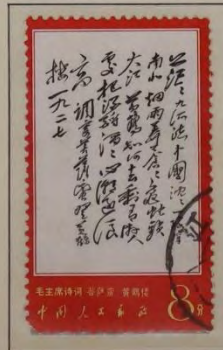 茫〻九派流中國沉〻一線穿
南北烟雨莽蒼〻龜蛇鎖
大江 黃鶴知何去剩有遊人
處把酒酹滔〻心潮逐浪
高 調寄菩薩蠻登黃鶴
樓一九二七
毛主席诗词 菩萨蛮 黄鹤楼
中国人民邮政 8分